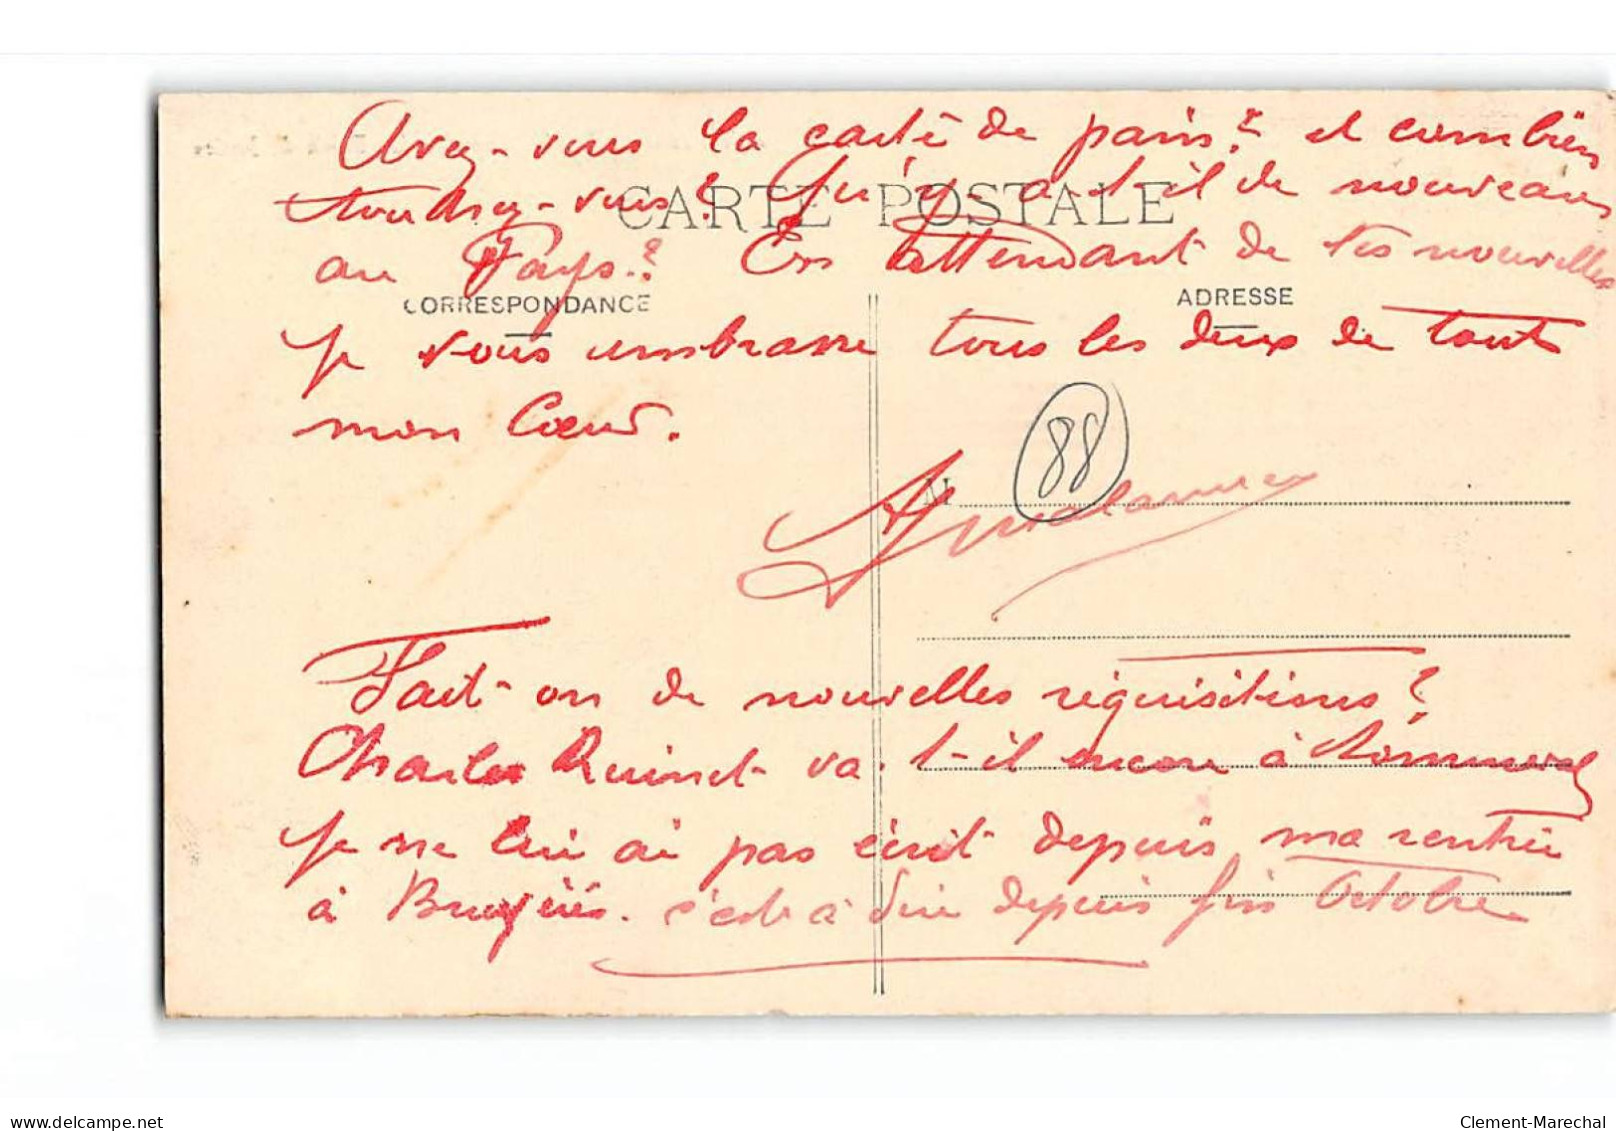 Avez-vous la carte de pain? et combien
touchez-vous? Qu'y a t il de nouveau
CARTE POSTALE
au Pays? En attendant de tes nouvelles
CORRESPONDANCE
ADRESSE
je vous embrasse tous les deux de tout
mon Cœur.
88
M
Fait-on de nouvelles réquisitions?
Charles va-t-il encore à
je ne lui ai pas écrit depuis ma rentrée
à Bruyères. c'est à dire depuis fin Octobre
delcampe.net
Clement-Marechal